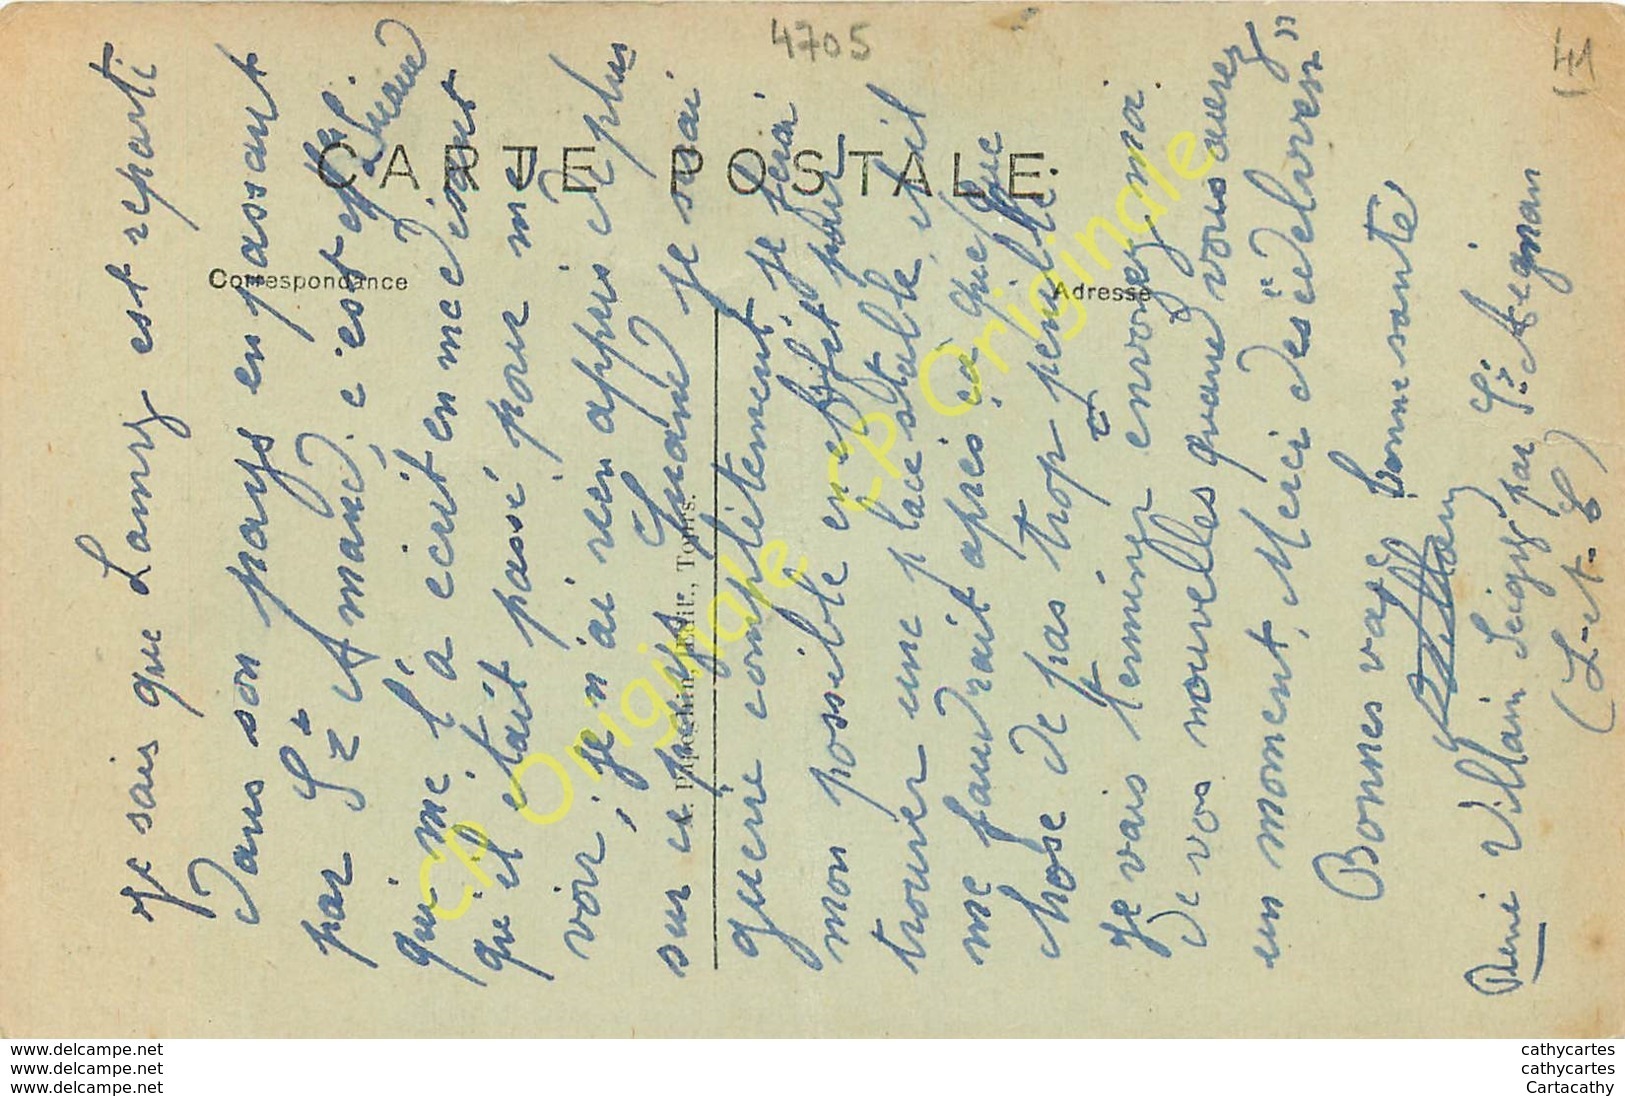 4705
41
CARTE POSTALE
Correspondance
Adresse
Je sais que Lamy est reparti
dans son pays en passant
par St Amand, c'est
qui me l'a écrit en me disant
qu'il était passé pour me
voir, je n'ai rien appris de plus
sur ce sujet. Quand je serai
guérie complètement, je ferai
mon possible en effet pour
trouver une place stable, et il
me faudrait après ça quelque
chose de pas trop pénible.
Je vais terminer envoyez moi
de vos nouvelles quand vous aurez
un moment, Merci des "édelores"
Bonnes vacs bonne santé
RVillain
René Villain Seigy par St Aegnan
(L-et-C)
Pipelin, Edit., Tours.
CP Originale CP Originale
www.delcampe.net
www.delcampe.net
www.delcampe.net
cathycartes
cathycartes
Cartacathy